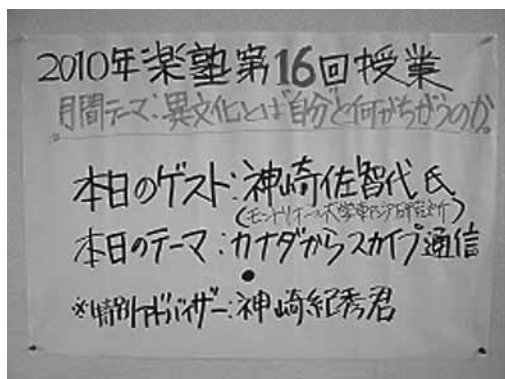 2010年楽塾第16回授業
月間テーマ:異文化とは“自分”と何がちがうのか。
本日のゲスト:神崎佐智代氏
(モントリオール大学東アジア研究所)
本日のテーマ:カナダからスカイプ通信
※特別アドバイザー:神崎紀秀君